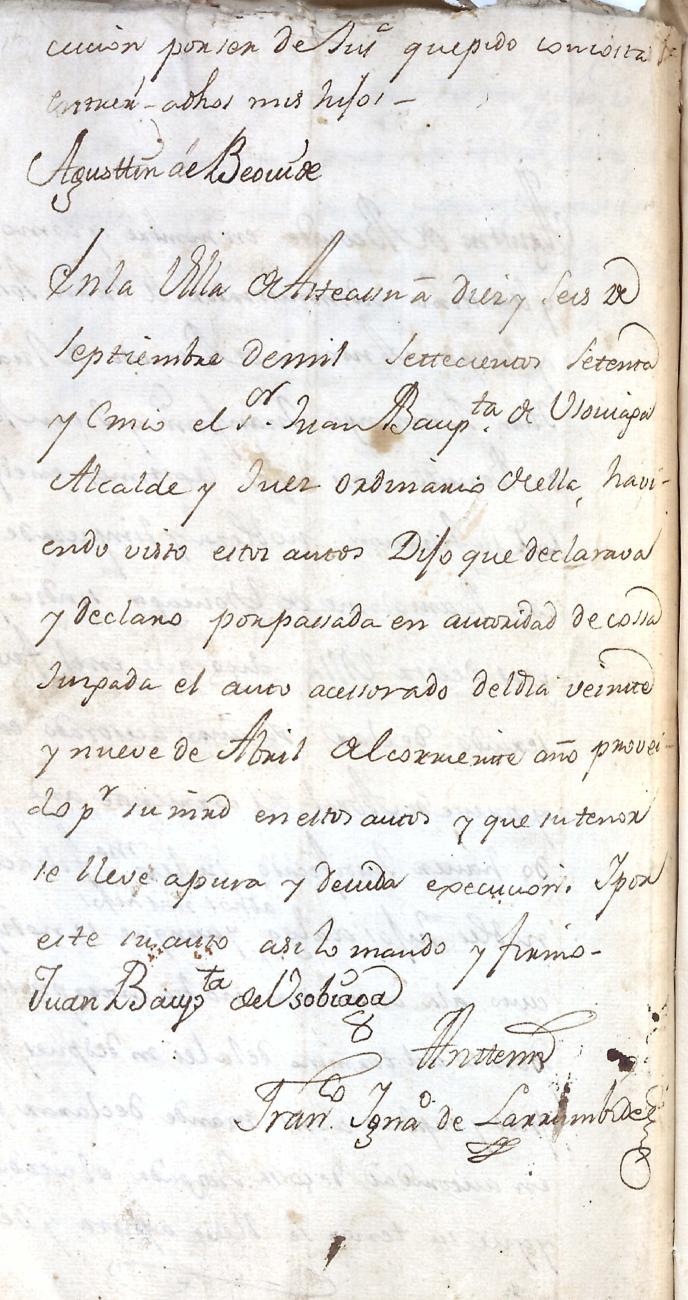 cucion por ser de Jusª que pido con costa
entre rˢ - a dhos mis hijos -
Agusttin de Beovide
En la Villa de Asteassu â diez y seis de
septiembre de mil settecientos setenta
y Cinco el sʳ. Juan Baupᵗᵃ. de Usoviaga
Alcalde y Juez ordinario de ella, havi-
endo visto estos autos Dijo que declarava
y declaro por passada en autoridad de cossa
Juzgada el auto acessorado del dia veintte
y nueve de Abril del corriente año provei-
do pʳ su mrd en estos autos y que su tenor
se lleve a pura y devida execucion. Y por
este su auto asi lo mando y firmo -
Juan Baupᵗᵃ de Usobiaga
Anttemi
Franᶜᵒ. Ignaᵒ. de Larrumbide